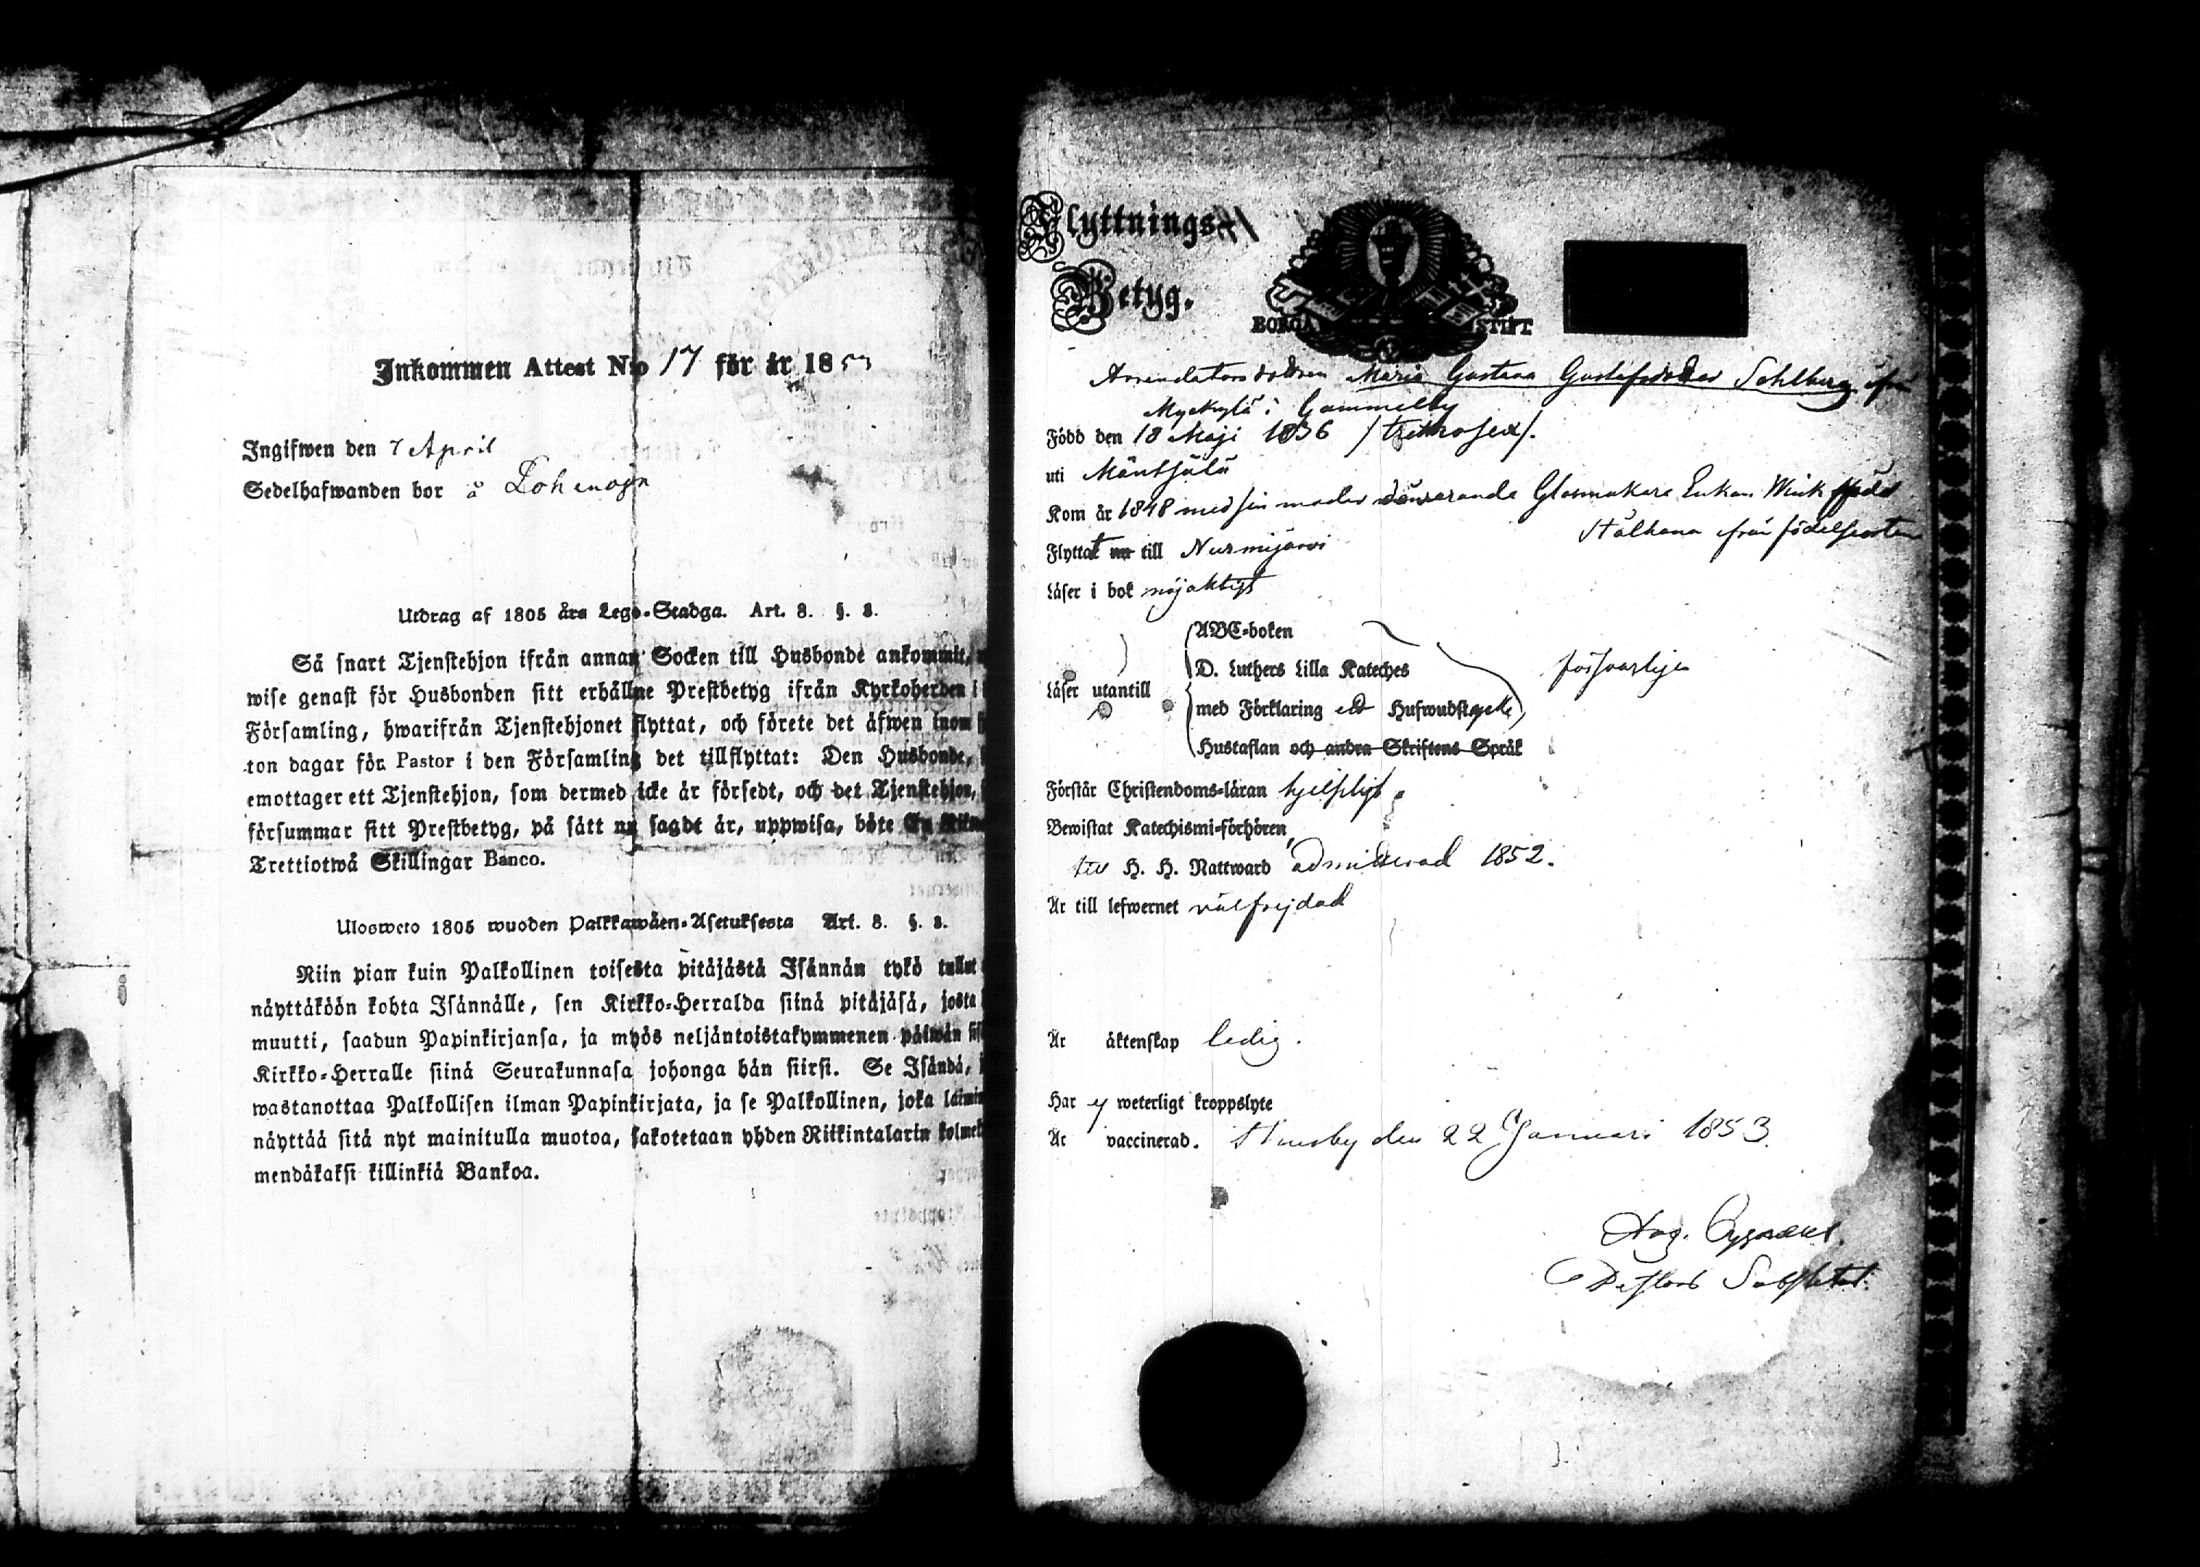 Inkommen Attest N:o 17 för år 1853
Ingifwen den 7 April
Sedelhafwanden bor å
Utdrag af 1805 års Lego-Stadga. Art. 8. §. 2.
Så snart Tjenstehjon ifrån annan Socken till Husbonde ankommit,
wise genast för Husbonden sitt erhållne Prestbetyg ifrån Kyrkoherden i
Församling, hwarifrån Tjenstehjonet flyttat, och förete det äfwen inom
ton dagar för Pastor i den Församling det tillflyttat: Den Husbonde,
emottager ett Tjenstehjon, som dermed icke är försedt, och det Tjenstehjon,
försummar sitt Prestbetyg, på sätt nu sagdt är, uppwisa, böte En
Trettiotwå Skillingar Banco.
Ulosweto 1805 wuoden Palkkawäen-Asetuksesta Art. 8. §. 2.
Niin pian kuin Palkollinen toisesta pitäjästä Isännän tykö tullut
näyttäköön kohta Isännälle, sen Kirkko-Herralda siinä pitäjäsä, josta
muutti, saadun Papinkirjansa, ja myös neljäntoistakymmenen päiwän
Kirkko-Herralle siinä Seurakunnasa johonga hän siirsi. Se Isändä,
wastanottaa Palkollisen ilman Papinkirjata, ja se Palkollinen, joka
näyttää sitä nyt mainitulla muotoa, sakotetaan yhden Riikintalarin
mendäkaksi killinkiä Bankoa.
Flyttnings
Betyg.
BORGÅ STIFT.
Arrendatorsdottren Maria Gustava Gustafsdotter Sahlberg ifrån
Myckylä i Gammelby
Född den 18 Maji 1836 /trettiosex/.
uti Mäntsälä
Kom år 1848 med sin moder Glasmakare Enkan född
Stålhana från födelseorten
Flyttat nu till Nurmijärvi
Läser i bok nöjaktigt
ABC-boken
D. Luthers Lilla Kateches
Läser utantill
med Förklaring Hufwudstycke
försvarligen
Hustaflan och andra Skriftens Språk
Förstår Christendoms-läran hjelpligt
Bewistat Katechismi-förhören,
till H. H. Nattward admitterad 1852.
Är till lefwernet välfrejdad
Är äktenskap ledig.
Har ej weterligt kroppslyte
Är vaccinerad. den 22 Januari 1853.
Aug. Cygnæus.
Pastors Substitut.